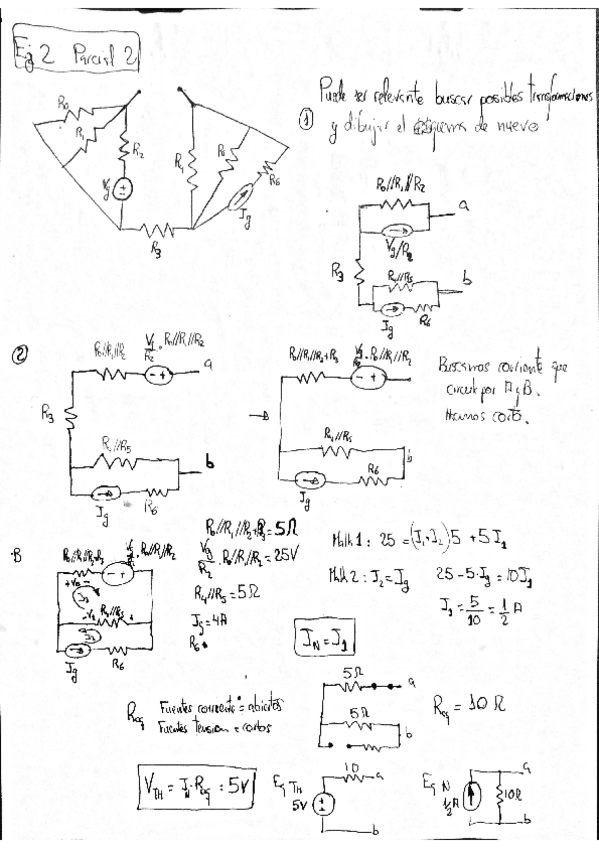 Ej 2 Parcial 2
Puede ser relevante buscar posibles transformaciones
① y dibujar el esquema de nuevo
R0
R1
R2
Vg
R3
R5
R6
Ig
R0//R1//R2
a
Vg/R2
R3
R4//R5
b
Ig
R6
②
R0//R1//R2
a
R3
R4//R5
b
Ig
R6
R0//R1//R2+R3
R4//R5
R6
b
Ig
Buscamos corriente que
circula por A y B.
Hacemos corto.
R4//R5
Ig
R6
R0//R1//R2+R3=5Ω
Vg/R2 · R0//R1//R2 = 25V
R4//R5=5Ω
Ig=4A
Malla 1: 25 = (I1+I2)5 + 5I1
Malla 2: I2=Ig 25-5·Ig = 10I1
I1 = 5/10 = 1/2 A
IN = I1
Req Fuentes corriente = abiertos
Fuentes tension = cortos
5Ω
a
5Ω
b
Req = 10 Ω
VTH = IN·Req = 5V
Eq TH
5V
10
a
b
Eq N
1/2A
10Ω
a
b